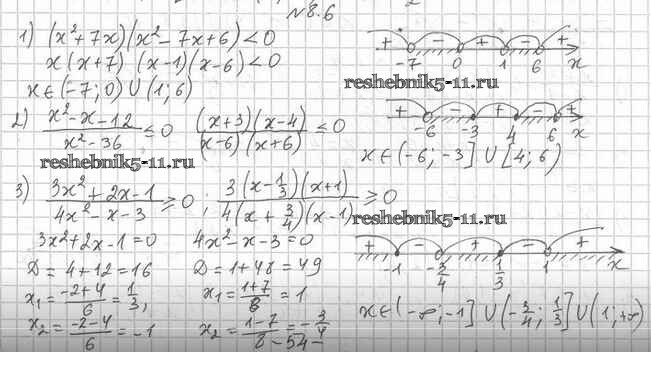 №8.6
1) (x²+7x)(x²-7x+6)<0
x(x+7)(x-1)(x-6)<0
x∈(-7;0)∪(1;6)
+ - + - +
-7 0 1 6 x
reshebnik5-11.ru
2) x²-x-12 / x²-36 ≤0 (x+3)(x-4) / (x-6)(x+6) ≤0
+ - + - +
-6 -3 4 6 x
reshebnik5-11.ru
x∈(-6;-3]∪[4;6)
3) 3x²+2x-1 / 4x²-x-3 ≥0; 3(x-1/3)(x+1) / 4(x+3/4)(x-1) ≥0
reshebnik5-11.ru
3x²+2x-1=0 4x²-x-3=0
+ - + - +
-1 -3/4 1/3 1 x
D=4+12=16 D=1+48=49
x₁=-2+4/6=1/3, x₁=1+7/8=1
x₂=-2-4/6=-1 x₂=1-7/8=-3/4
x∈(-∞;-1]∪(-3/4;1/3]∪(1;+∞)
- 54 -